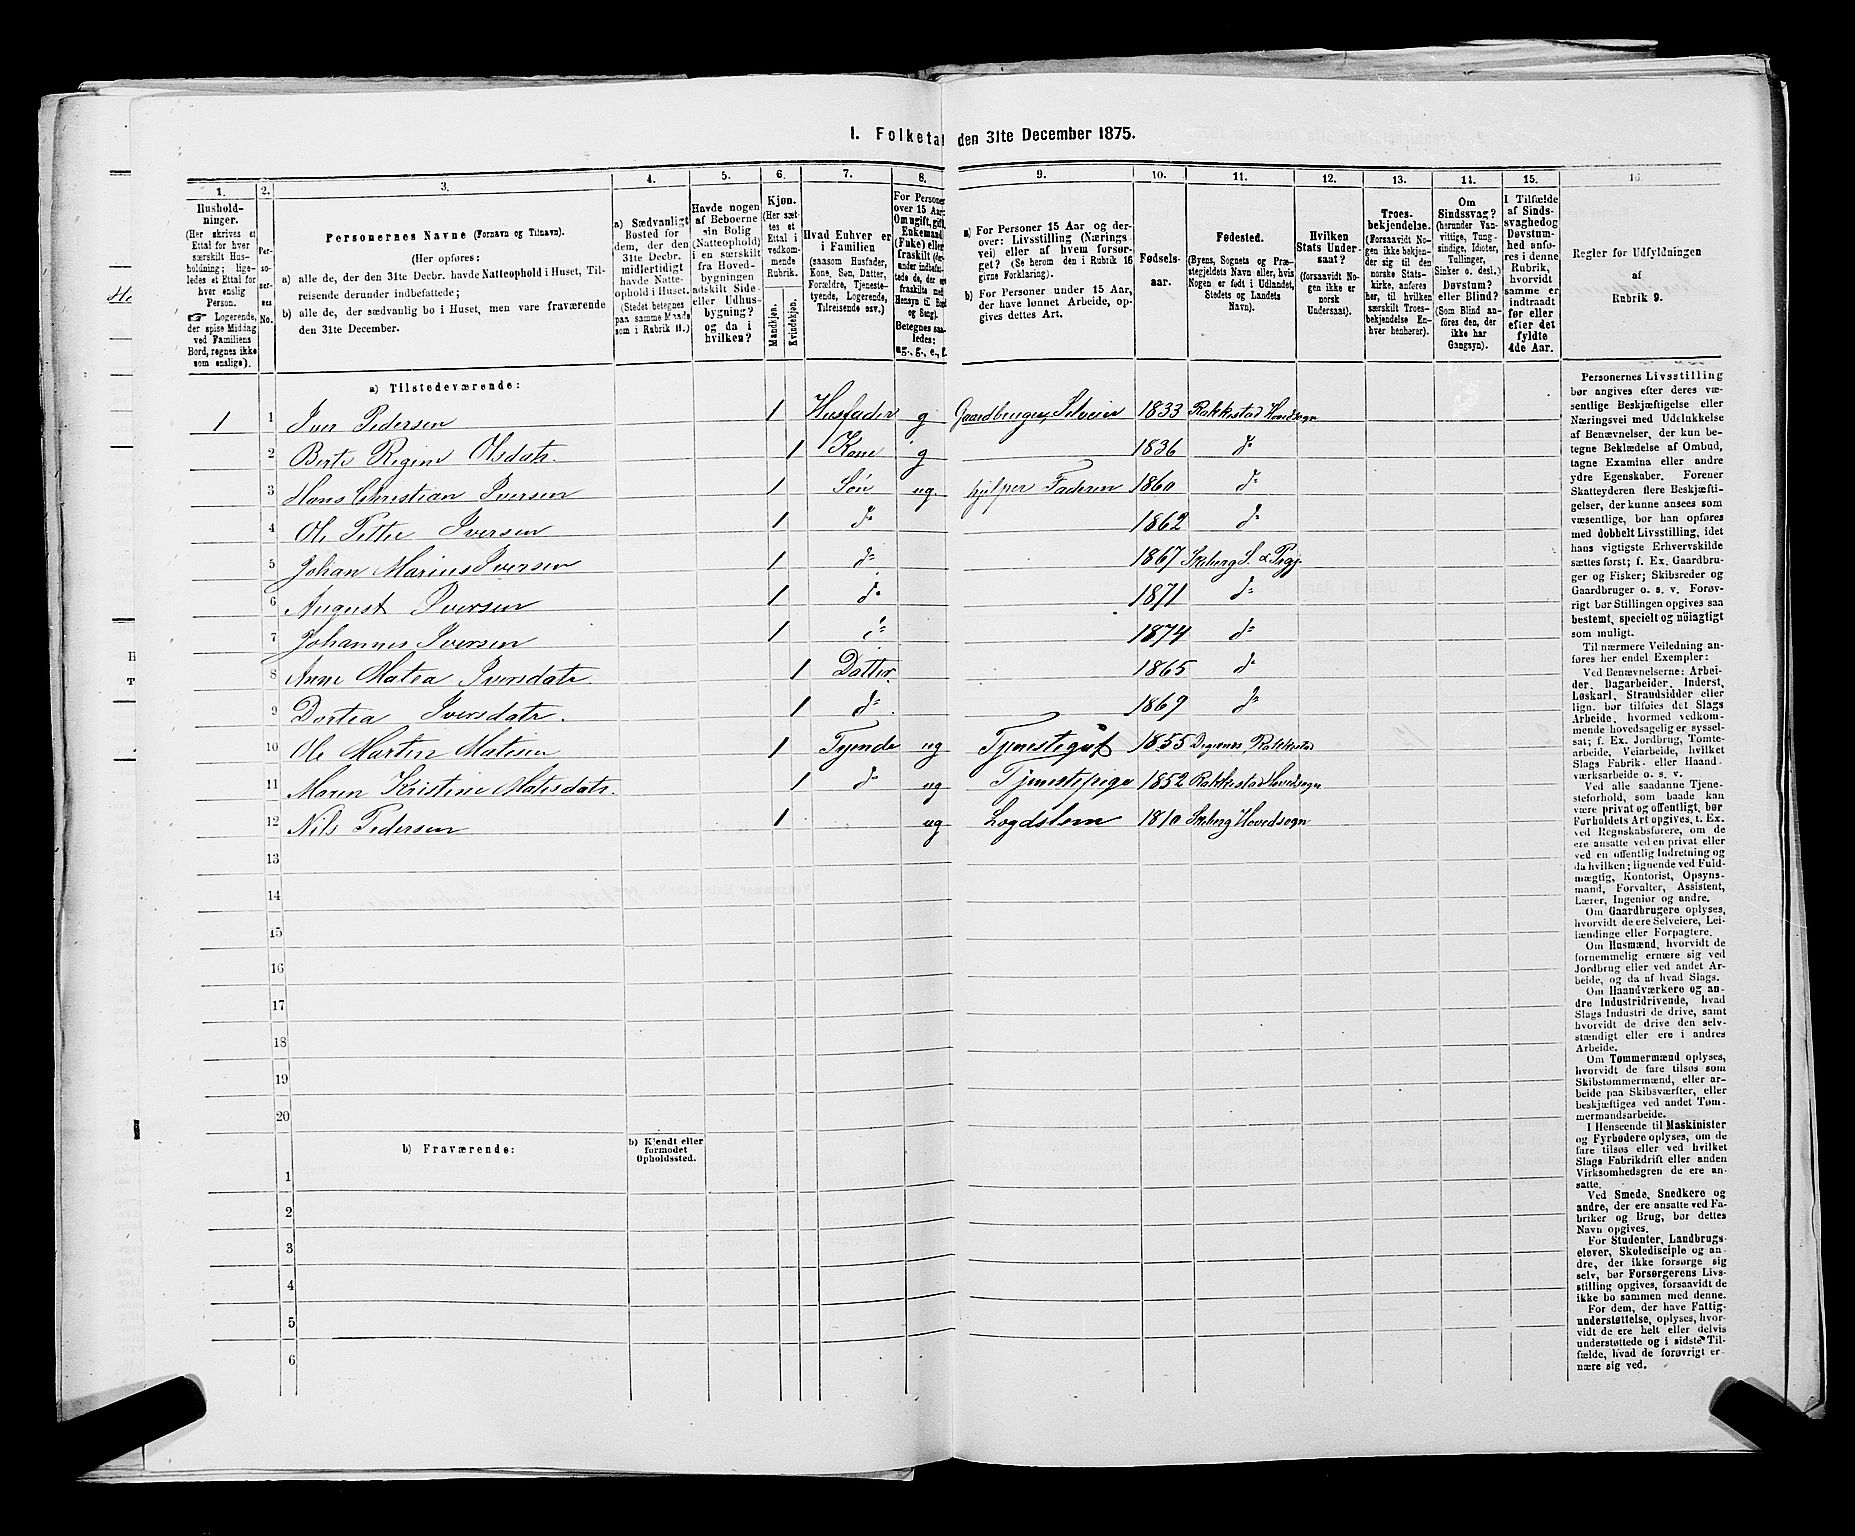 1. Folketal den 31te December 1875.
1. 2. 3. 4. 5. 6. 7. 8. 9. 10. 11. 12. 13. 14. 15. 16.
Husholdninger.
(Her skrives et
Ettal for hver
særskilt Husholdning;
ligeledes et Ettal for
hver enslig
Person.
☞ Logerende,
der spise Middag
ved Familiens
Bord, regnes ikke
som enslige).
Personernes No.
Personernes Navne (Fornavn og Tilnavn).
(Her opføres:
a) alle de, der den 31te Decbr. havde Natteophold i Huset, Tilreisende
derunder indbefattede;
b) alle de, der sædvanlig bo i Huset, men vare fraværende
den 31te December.
a) Sædvanligt
Bosted for
dem, der den
31te Decbr.
midlertidigt
havde Natteophold
i Huset.
(Stedet betegnes
paa samme Maade
som i Rubrik 11.)
Havde nogen
af Beboerne
sin Bolig
(Natteophold)
i en særskilt
fra Hovedbygningen
adskilt Side-
eller Udhusbygning?
og da i
hvilken?
Kjøn.
(Her sættes
et
Ettal i
vedkommende
Rubrik.
Mandkjøn.
Kvindekjøn.
Hvad Enhver er
i Familien
(saasom Husfader,
Kone, Søn, Datter,
Forældre, Tjenestetyende,
Logerende,
Tilreisende osv.)
For Personer
over 15 Aar:
Om ugift, gift,
Enkemand
(Enke) eller
fraskilt
Betegnes saaledes:
ug., g., e., f.
a) For Personer 15 Aar og derover:
Livsstilling (Næringsvei)
eller af hvem forsørget?
(Se herom den i Rubrik 16
givne Forklaring).
b) For Personer under 15 Aar,
der have lønnet Arbeide, opgives
dettes Art.
Fødselsaar.
Fødested.
(Byens, Sognets og Præstegjeldets
Navn eller, hvis
Nogen er født i Udlandet,
Stedets og Landets
Navn).
Hvilken
Stats Undersaat?
(forsaavidt Nogen
ikke er
norsk
Undersaat).
Troesbekjendelse.
(Forsaavidt Nogen
ikke bekjender
sig til den
norske Statskirke,
anføres
her, til hvilken
særskilt Troesbekjendelse
Enhver
henhører).
Om
Sindssvag?
(herunder Vanvittige,
Tungsindige,
Idioter,
Tullinger,
Sinker o. desl.)
Døvstum?
eller Blind?
(Som Blind anføres
den, der
ikke har
Gangsyn).
I Tilfælde
af Sindssvaghed
og
Døvstumhed
anføres
i denne
Rubrik,
hvorvidt
samme er
indtraadt
før eller
efter det
fyldte
4de Aar.
Regler for Udfyldningen
af
Rubrik 9.
a) Tilstedeværende:
1 1 Iver Pedersen 1 Husfader g Gaardbruger, Selveier 1833 Rakkestad Hovedsogn
2 Berte Regine Olsdatr. 1 Kone g 1836 do
3 Hans Christian Iversen 1 Søn ug. hjelper Faderen 1860 do
4 Ole Petter Iversen 1 do 1862 do
5 Johan Marius Iversen 1 do 1867 Skiberg S. & Prgj.
6 August Iversen 1 do 1871 do
7 Johannes Iversen 1 do 1874 do
8 Anne Matea Iversdatr. 1 Datter. 1865 do
9 Dortea Iversdatr. 1 do 1869 do
10 Ole Martin Matisen 1 Tyende ug Tjenestegut 1855 Degernes, Rakkestad
11 Maren Kristine Matisdatr. 1 do ug Tjenestepige 1852 Rakkestad Hovedsogn
12 Nils Pedersen 1 ug Logdslem 1810 Skiberg Hovedsogn
13
14
15
16
17
18
19
20
b) Fraværende:
b) Kjendt eller
formodet
Opholdssted.
1
2
3
4
5
6
Personernes Livsstilling
bør angives efter deres væsentlige
Beskjæftigelse eller
Næringsvei med Udelukkelse
af Benævnelser, der kun betegne
Beklædelse af Ombud,
tagne Examina eller andre
ydre Egenskaber. Forener
Skatteyderen flere Beskjæftigelser,
der kunne ansees som
væsentlige, bør han opføres
med dobbelt Livsstilling, idet
hans vigtigste Erhvervskilde
sættes først; f. Ex. Gaardbruger
og Fisker; Skibsreder og
Gaardbruger o. s. v. Forøvrigt
bør Stillingen opgives saa
bestemt, specielt og nöiagtigt
som muligt.
Til nærmere Veiledning anføres
her endel Exempler:
Ved Benævnelserne: Arbeider,
Dagarbeider, Inderst,
Løskarl, Strandsidder eller
lign. bør tilføies det Slags
Arbeide, hvormed vedkommende
hovedsagelig er sysselsat;
f. Ex. Jordbrug, Tomtearbeide,
Veiarbeide, hvilket
Slags Fabrik- eller Haandværksarbeide
o. s. v.
Ved alle saadanne Tjenesteforhold,
som baade kan
være privat og offentligt, bør
Forholdets Art opgives, t. Ex.
ved Regnskabsførere, om de
ere ansatte ved en privat eller
ved en offentlig Indretning og
da hvilken; lignende ved Fuldmægtig,
Kontorist, Opsynsmand,
Forvalter, Assistent,
Lærer, Ingeniør og andre.
Om Gaardbrugere oplyses,
hvorvidt de ere Selveiere, Leilændinge
eller Forpagtere.
Om Husmænd, hvorvidt de
fornemmelig ernære sig ved
Jordbrug eller ved andet Arbeide,
og da af hvad Slags.
Om Haandværkere og andre
Industridrivende, hvad
Slags Industri de drive, samt
hvorvidt de drive den selvstændigt
eller ere i andres
Arbeide.
Om Tømmermænd oplyses,
hvorvidt de fare tilsøs som
Skibstømmermænd, eller arbeide
paa Skibsværfter, eller
beskjæftiges ved andet Tømmermandsarbeide.
I Henseende til Maskinister
og Fyrbødere oplyses, om de
fare tilsøs eller ved hvilket
Slags Fabrikdrift eller anden
Virksomhedsgren de ere ansatte.
Ved Smede, Snedkere og
andre, der ere ansatte ved Fabriker
og Brug, bør dettes
Navn opgives.
For Studenter, Landbrugselever,
Skoledisciple og andre,
der ikke forsørge sig
selv, bør Forsørgerens Livsstilling
opgives, forsaavidt de
ikke bo sammen med denne.
For dem, der have Fattigunderstøttelse,
oplyses, hvorvidt
de ere helt eller delvis
understøttede og i sidste Tilfælde,
hvad de forøvrigt ernære
sig ved.